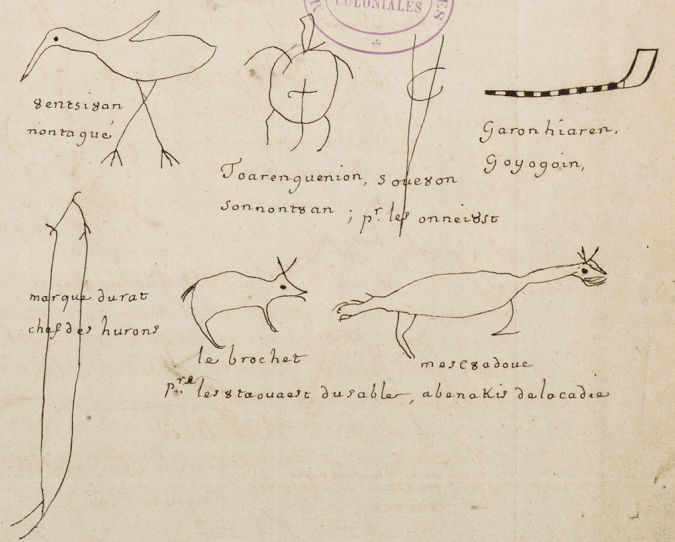 COLONIALES
8entsi8an
nontagué
Toarenguenion, soue8on
sonnont8an ; pr. les onnei8st
Garonhiaren,
Goyogoin,
marque durat
chef des hurons
le brochet
mesc8adoue
pre. les 8taouaest dusable, abenakis delacadie